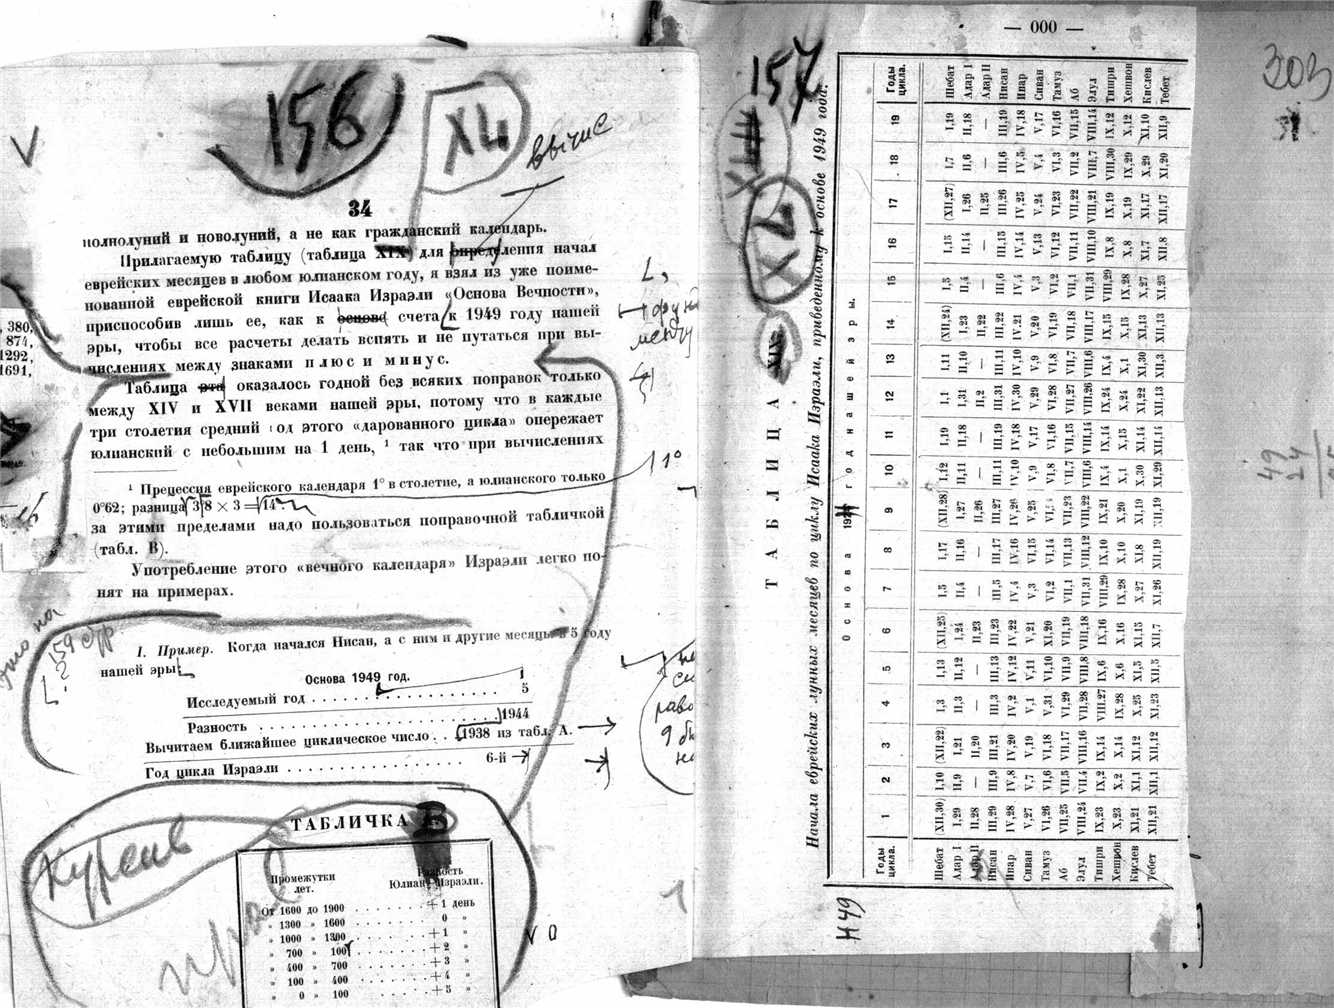 156
XLI
вычис
34
полнолуний и новолуний, а не как гражданский календарь.
Прилагаемую таблицу (таблица XIX) для определения начал
еврейских месяцев в любом юлианском году, я взял из уже поиме-
нованной еврейской книги Исаака Израэли «Основа Вечности»,
приспособив лишь ее, как к основе счета к 1949 году нашей
эры, чтобы все расчеты делать вспять и не путаться при вы-
числениях между знаками плюс и минус.
Таблица эта оказалось годной без всяких поправок только
между XIV и XVII веками нашей эры, потому что в каждые
три столетия средний год этого «дарованного цикла» опережает
юлианский с небольшим на 1 день, ¹ так что при вычислениях
¹ Прецессия еврейского календаря 1° в столетие, а юлианского только
0°62; разница 3/8 × 3 = 14
за этими пределами надо пользоваться поправочной табличкой
(табл. В).
Употребление этого «вечного календаря» Израэли легко по-
нят на примерах.
1. Пример. Когда начался Нисан, а с ним и другие месяцы в 5 году
нашей эры
Основа 1949 год.
Исследуемый год . . . 5
Разность . . . 1944
Вычитаем ближайшее циклическое число . . 1938 из табл. А.
Год цикла Израэли . . . 6-й
380,
874,
1292,
1691,
Курсив
ТАБЛИЧКА В
Промежутки лет.
Разность Юлиан-Израэли.
От 1600 до 1900 . . . +1 день
» 1300 » 1600 . . . 0 »
» 1000 » 1300 . . . +1 »
» 700 » 100 . . . +2 »
» 400 » 700 . . . +3 »
» 100 » 400 . . . +4 »
» 0 » 100 . . . +5 »
— 000 —
303
157
ТАБЛИЦА XIX.
Начала еврейских лунных месяцев по циклу Исаака Израэли, приведенному к основе 1949 года.
Основа 19 год нашей эры.
Годы цикла. 1 2 3 4 5 6 7 8 9 10 11 12 13 14 15 16 17 18 19 Годы цикла.
Шебат (XII,30) I,10 (XII,22) I,3 I,13 (XII,25) I,5 I,17 (XII,28) I,12 I,19 I,1 I,11 (XII,24) I,5 I,15 (XII,27) I,7 I,19 Шебат
Адар I I,29 II,9 I,21 II,3 II,12 I,24 II,4 II,16 I,27 II,11 II,18 I,31 II,10 I,23 II,4 II,14 I,26 II,6 II,18 Адар I
Адар II II,28 — II,20 — — II,23 — — II,26 — — II,2 — II,22 — — II,25 — — Адар II
Нисан III,29 III,9 III,21 III,3 III,13 III,23 III,5 III,17 III,27 III,11 III,19 III,31 III,11 III,22 III,6 III,15 III,26 III,6 III,19 Нисан
Ияр IV,28 IV,8 IV,20 IV,2 IV,12 IV,22 IV,4 IV,16 IV,26 IV,10 IV,18 IV,30 IV,10 IV,21 IV,4 IV,14 IV,25 IV,5 IV,18 Ияр
Сиван V,27 V,7 V,19 V,1 V,11 V,21 V,3 VI,15 V,25 V,9 V,17 V,29 V,9 V,20 V,3 V,13 V,24 V,4 V,17 Сиван
Тамуз VI,26 VI,6 VI,18 V,31 VI,10 XI,20 VI,2 VI,14 VI,8 VI,16 VI,28 VI,8 VI,19 VI,2 VI,12 VI,23 VI,3 VI,16 Тамуз
Аб VII,25 VII,5 VII,17 VI,29 VII,9 VII,19 VII,1 VII,13 VII,23 VII,7 VII,15 VII,27 VII,7 VII,18 VII,1 VII,11 VII,22 VII,2 VII,15 Аб
Элул VIII,24 VII,4 VIII,16 VII,28 VII,8 VIII,18 VII,31 VIII,12 VIII,22 VIII,6 VIII,14 VIII,26 VIII,6 VIII,17 VII,31 VIII,10 VIII,21 VIII,7 VIII,14 Элул
Тишри IX,23 IX,2 IX,14 VIII,27 IX,6 IX,16 VIII,29 IX,10 IX,21 IX,4 IX,14 IX,24 IX,4 IX,15 VIII,29 IX,8 IX,19 VIII,30 IX,12 Тишри
Хешвон X,23 X,2 X,14 IX,28 X,6 X,16 IX,28 X,10 X,20 X,1 X,15 X,24 X,1 X,15 IX,28 X,8 X,19 IX,29 X,12 Хешвон
Кислев XI,21 XI,1 XI,12 X,25 XI,5 XI,15 X,27 XI,8 XI,19 X,30 XI,14 XI,22 XI,30 XI,13 X,27 XI,7 XI,17 X,29 XI,10 Кислев
Тебет XII,21 XII,1 XII,12 XI,23 XII,5 XII,7 XI,26 XII,19 XII,19 XI,29 XII,14 XII,13 XII,3 XII,13 XI,25 XII,8 XII,17 XI,20 XII,9 Тебет
Н49